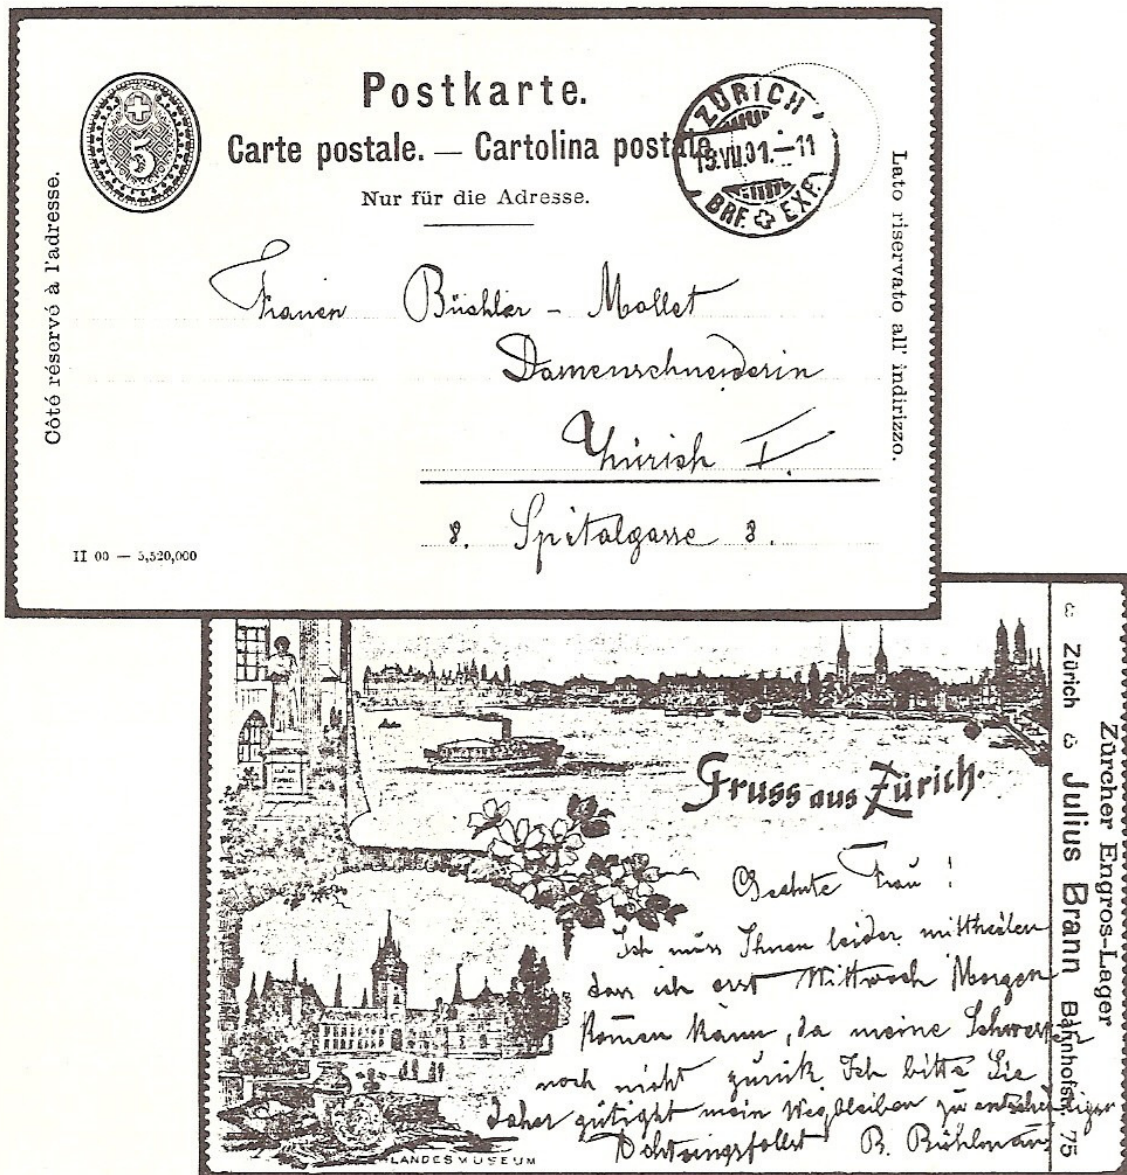 Postkarte.
Carte postale. — Cartolina postale.
Nur für die Adresse.
ZÜRICH
19.VII.01.–11
BRF. EXP.
5
Côté réservé à l'adresse.
Lato riservato all' indirizzo.
Frauen Büchler - Mollet
Damenschneiderin
Zürich I.
8. Spitalgasse 8.
II 00 — 5,520,000
Gruss aus Zürich.
Geehrte Frau !
Ich muss Ihnen leider mittheilen
dass ich erst Mittwoch Morgen
komen kann, da meine Schwester
noch nicht zurük. Ich bitte Sie
daher gütigst mein Wegbleiben zu entschuldigen
B. Bühlmann
LANDESMUSEUM
Zürcher Engros-Lager
Zürich Julius Brann Bahnhofst. 75